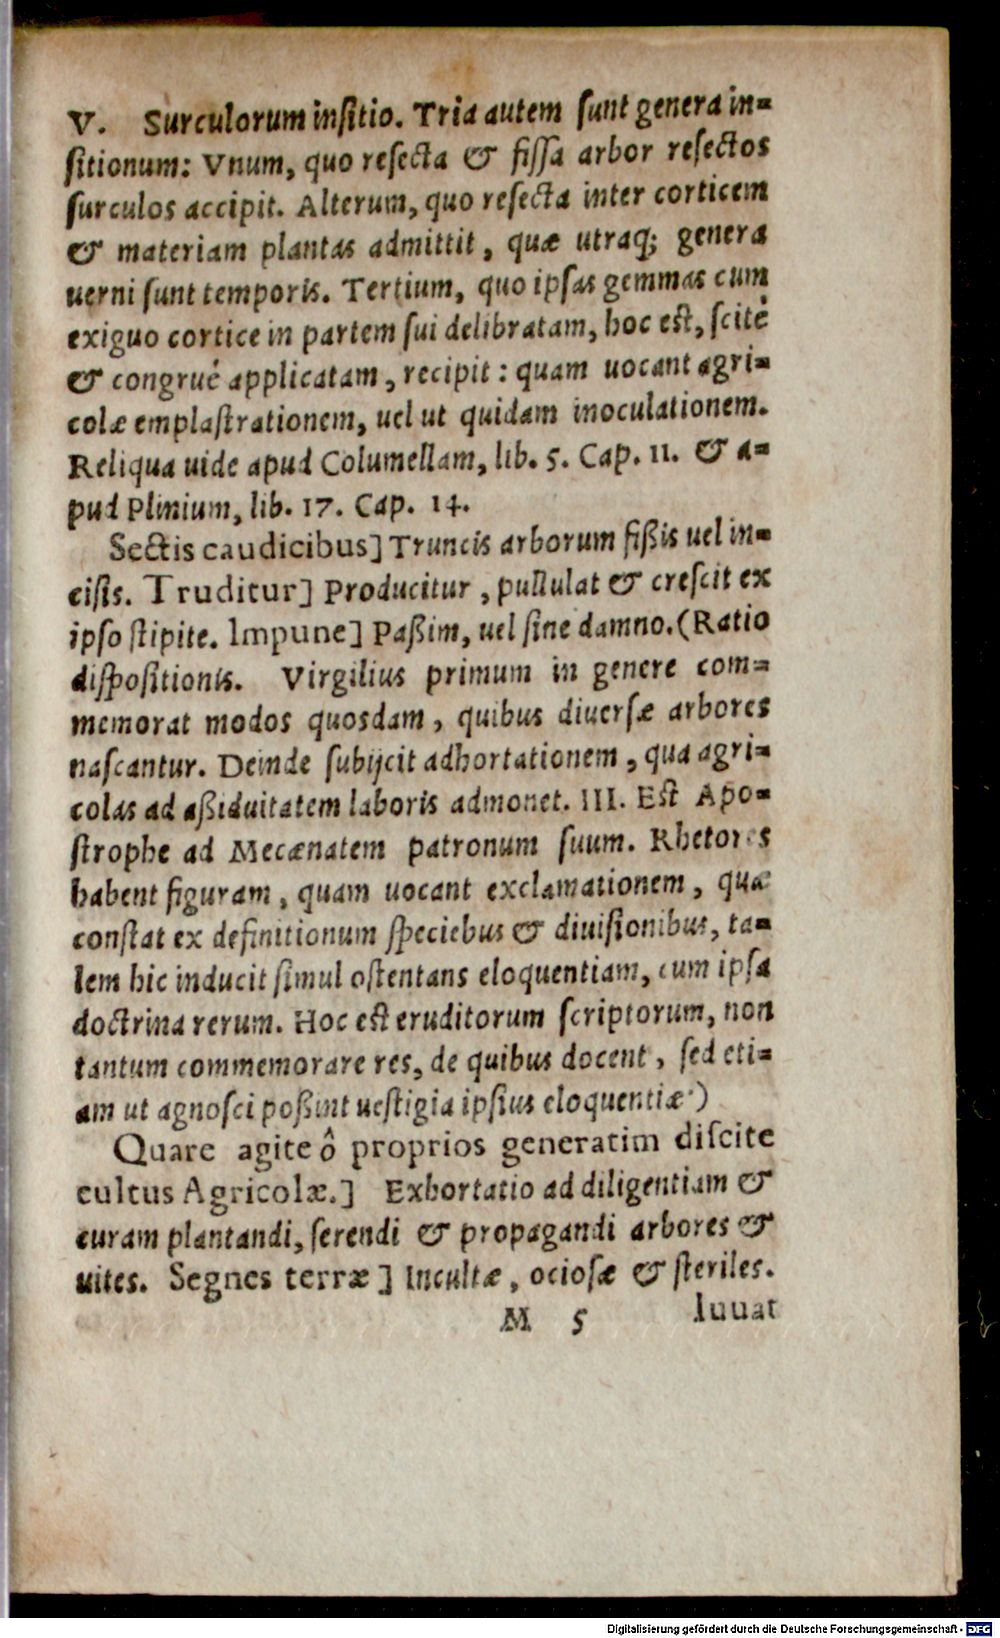 V. Surculorum insitio. Tria autem sunt genera in-
sitionum: Vnum, quo resecta & fissa arbor resectos
surculos accipit. Alterum, quo resecta inter corticem
& materiam plantas admittit, quæ utraq; genera
uerni sunt temporis. Tertium, quo ipsas gemmas cum
exiguo cortice in partem sui delibratam, hoc est, scité
& congrué applicatam, recipit: quam uocant agri-
colæ emplastrationem, uel ut quidam inoculationem.
Reliqua uide apud Columellam, lib. 5. Cap. 11. & a-
pud Plinium, lib. 17. Cap. 14.
Sectis caudicibus] Truncis arborum fißis uel in-
cisis. Truditur] Producitur, pullulat & crescit ex
ipso stipite. Impune] Paßim, uel sine damno. (Ratio
dispositionis. Virgilius primum in genere com-
memorat modos quosdam, quibus diuersæ arbores
nascantur. Deinde subijcit adhortationem, qua agri-
colas ad aßiduitatem laboris admonet. III. Est Apo-
strophe ad Mecænatem patronum suum. Rhetores
habent figuram, quam uocant exclamationem, quæ
constat ex definitionum speciebus & diuisionibus, ta-
lem hic inducit simul ostentans eloquentiam, cum ipsa
doctrina rerum. Hoc est eruditorum scriptorum, non
tantum commemorare res, de quibus docent, sed eti-
am ut agnosci poßint uestigia ipsius eloquentiæ.)
Quare agite ô proprios generatim discite
cultus Agricolæ.] Exhortatio ad diligentiam &
curam plantandi, serendi & propagandi arbores &
uites. Segnes terræ] Incultæ, ociosæ & steriles.
M 5 Iuuat
Digitalisierung gefördert durch die Deutsche Forschungsgemeinschaft - DFG